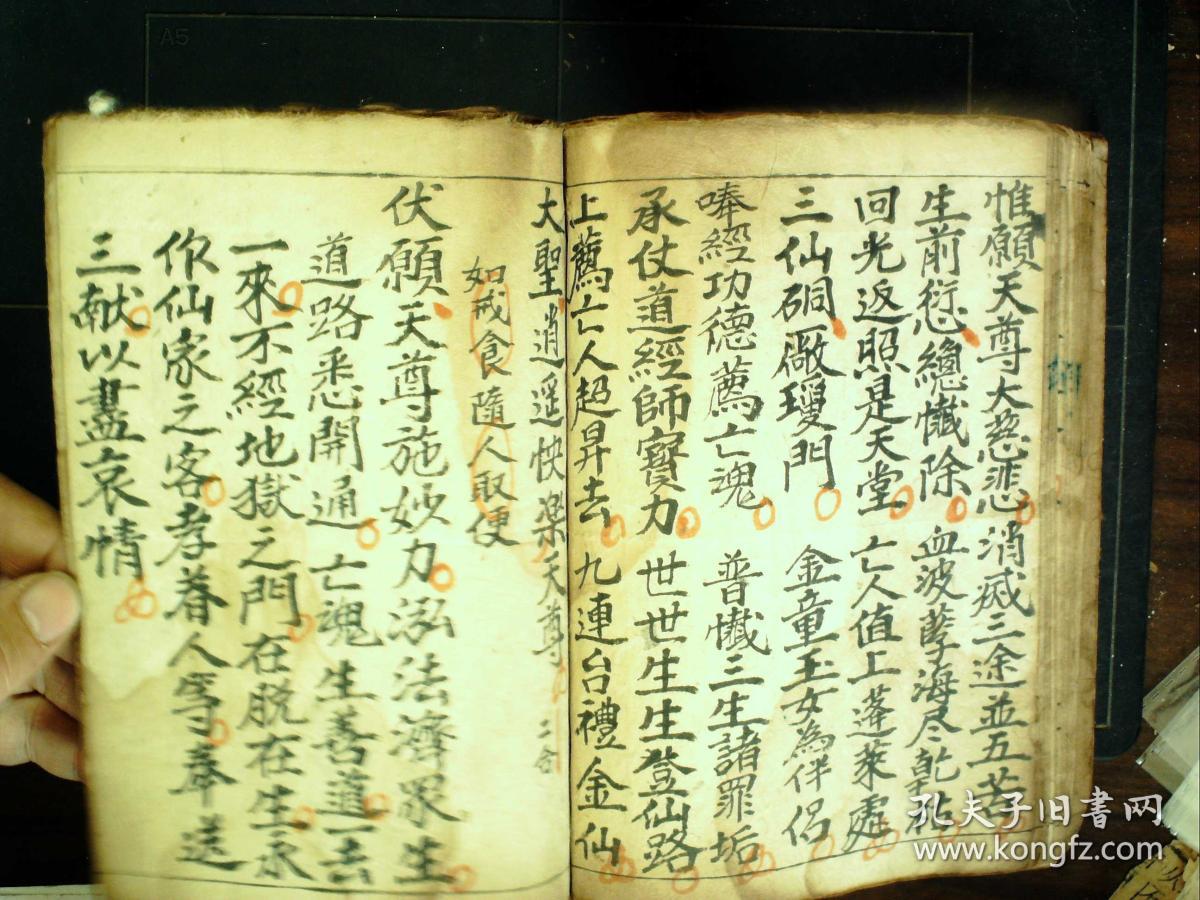 惟願天尊大慈悲消滅三途並五苦
生前愆總懺除血波孽海尽乾枯
回光返照是天堂亡人值上蓬萊處
三仙硐厰瓊門金童玉女為伴侶
唪經功德薦亡魂普懺三生諸罪垢
承仗道經師寶力世世生生登仙路
上薦亡人超昇去九連台禮金仙
大聖逍遥快樂天尊
如戒食隨人取便
伏願天尊施妙力泓法濟眾生
道路悉開通亡魂生善道一去
一來不經地獄之門在脱在生永
你仙家之客孝眷人等奉送
三献以盡哀情
A5
孔夫子旧書网
www.kongfz.com